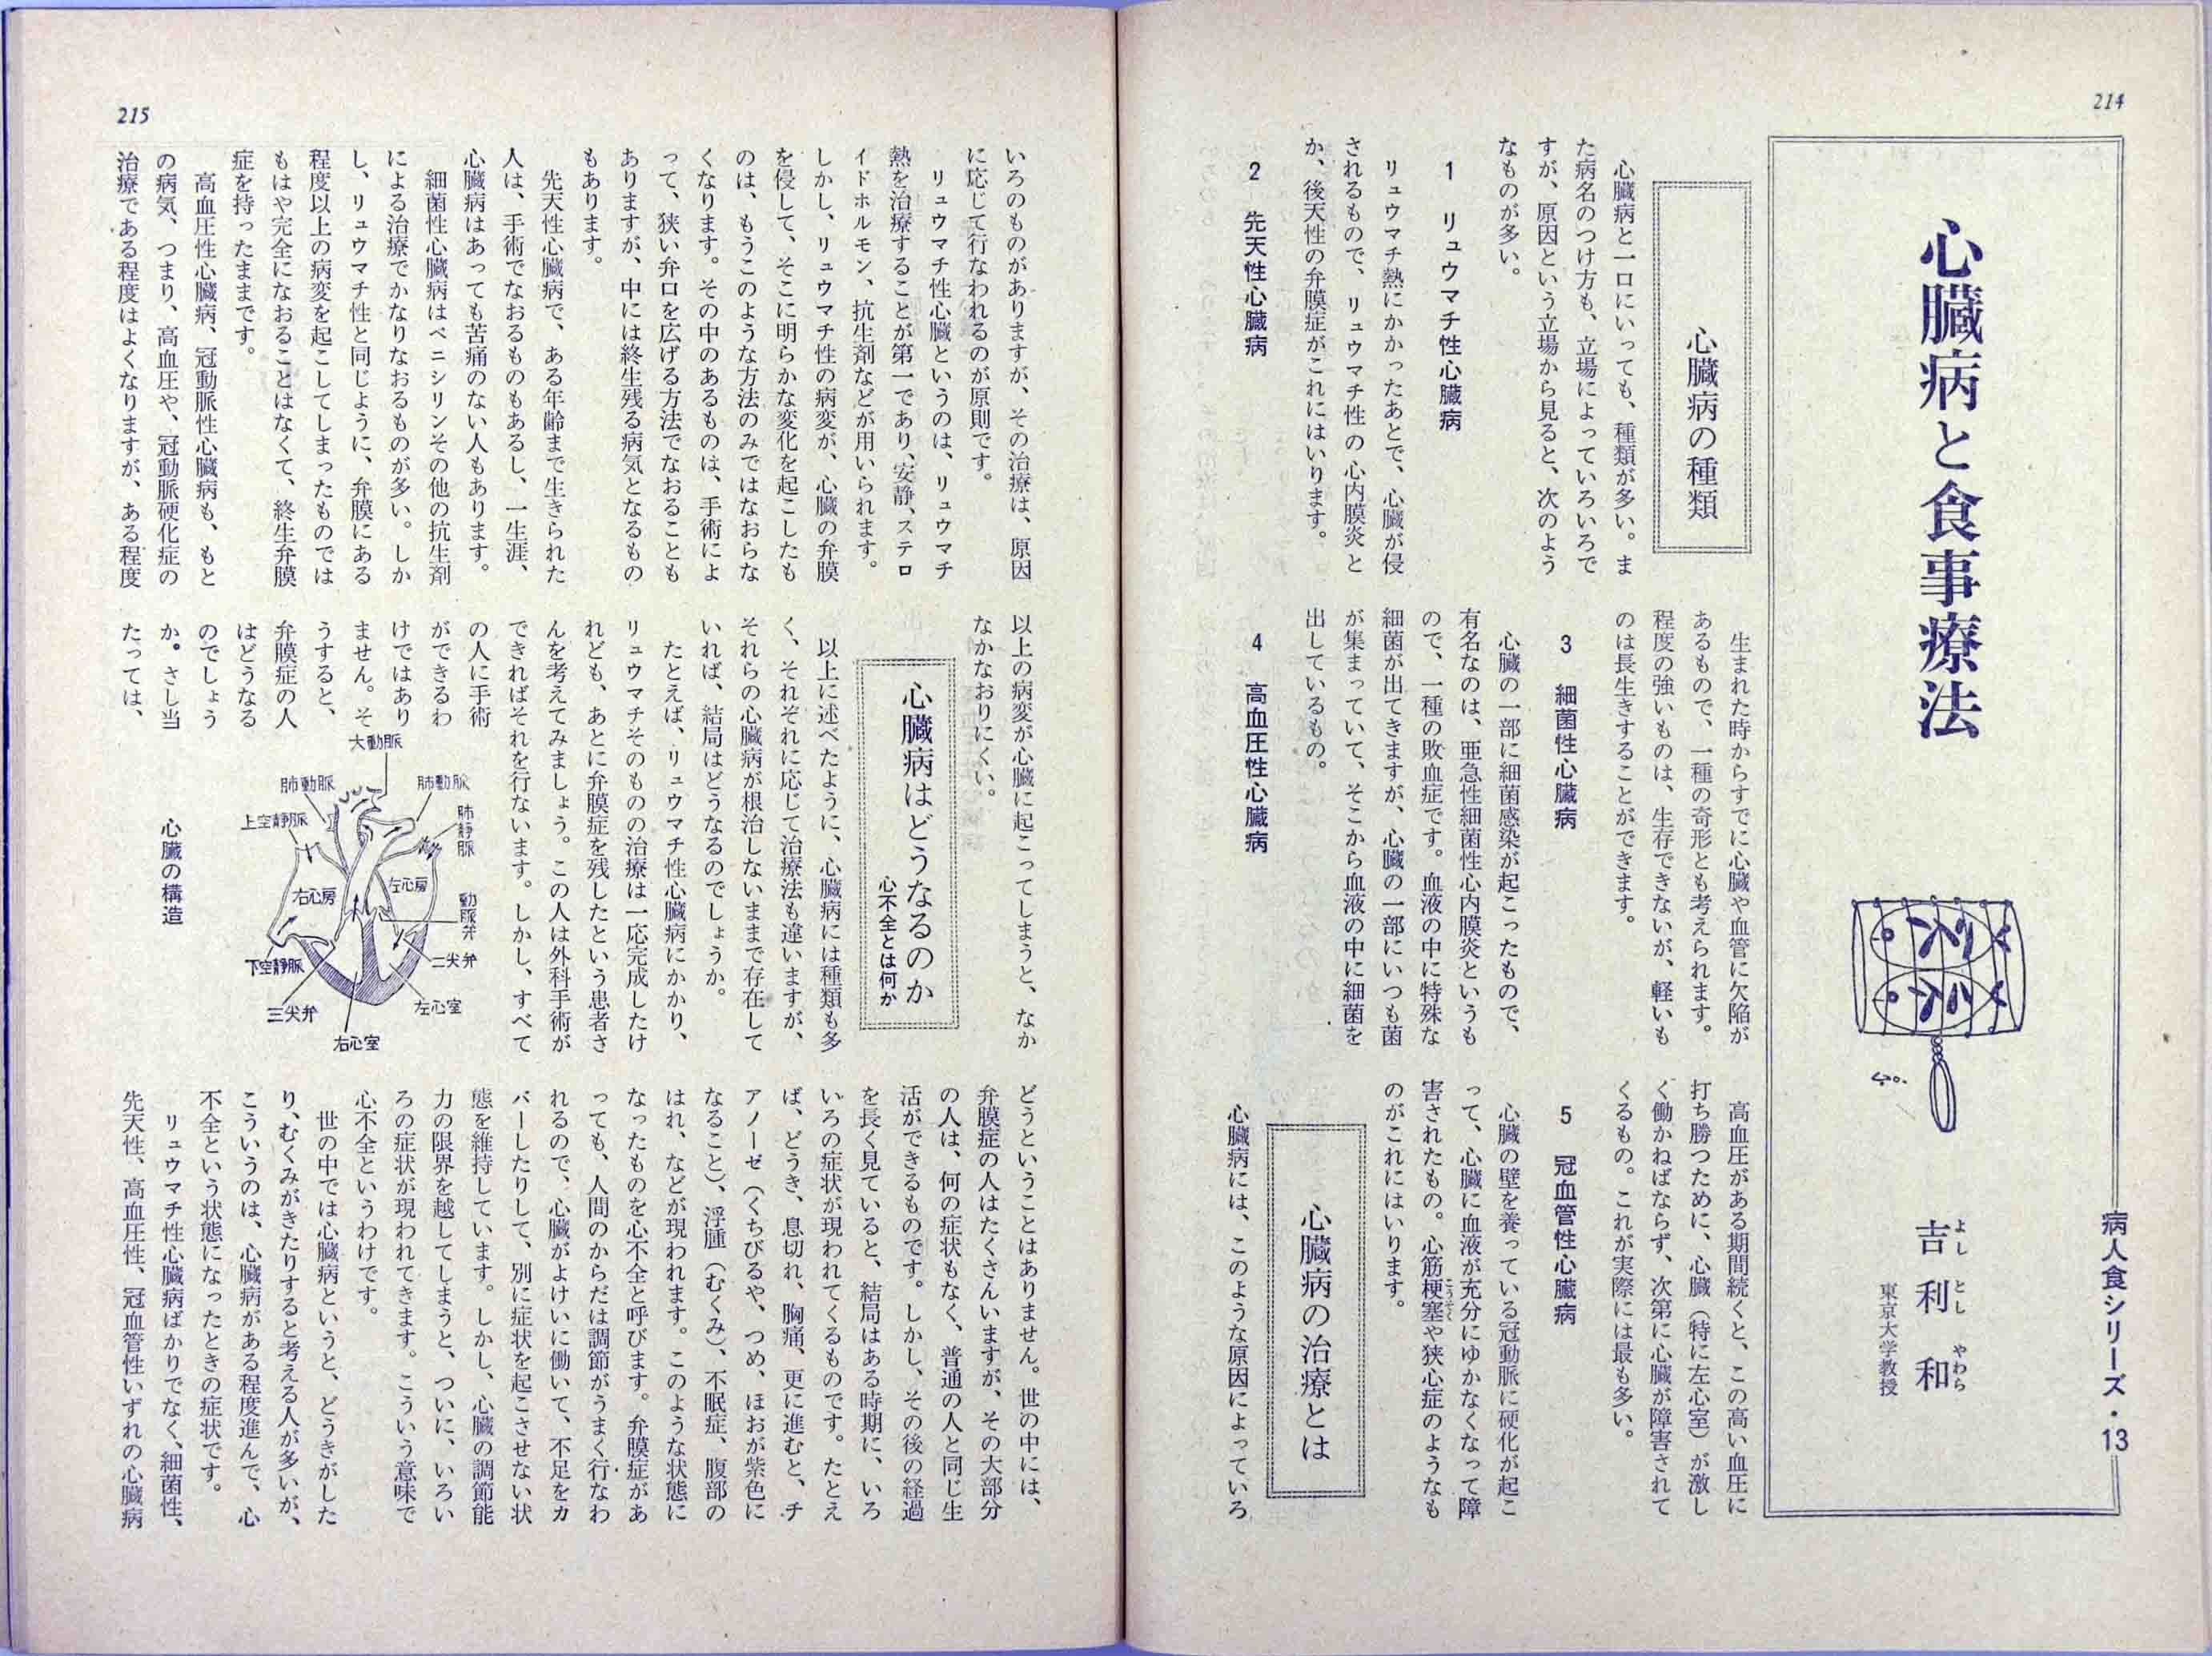 214
病人食シリーズ・13
心臓病と食事療法
吉利和
よしとしやわら
東京大学教授
心臓病の種類
心臓病と一口にいっても、種類が多い。ま
た病名のつけ方も、立場によっていろいろで
すが、原因という立場から見ると、次のよう
なものが多い。
1 リュウマチ性心臓病
リュウマチ熱にかかったあとで、心臓が侵
されるもので、リュウマチ性の心内膜炎と
か、後天性の弁膜症がこれにはいります。
2 先天性心臓病
生まれた時からすでに心臓や血管に欠陥が
あるもので、一種の奇形とも考えられます。
程度の強いものは、生存できないが、軽いも
のは長生きすることができます。
3 細菌性心臓病
心臓の一部に細菌感染が起こったもので、
有名なのは、亜急性細菌性心内膜炎というも
ので、一種の敗血症です。血液の中に特殊な
細菌が出てきますが、心臓の一部にいつも菌
が集まっていて、そこから血液の中に細菌を
出しているもの。
4 高血圧性心臓病
高血圧がある期間続くと、この高い血圧に
打ち勝つために、心臓（特に左心室）が激し
く働かねばならず、次第に心臓が障害されて
くるもの。これが実際には最も多い。
5 冠血管性心臓病
心臓の壁を養っている冠動脈に硬化が起こ
って、心臓に血液が充分にゆかなくなって障
害されたもの。心筋梗塞や狭心症のようなも
こうそく
のがこれにはいります。
心臓病の治療とは
心臓病には、このような原因によっていろ
215
いろのものがありますが、その治療は、原因
に応じて行なわれるのが原則です。
リュウマチ性心臓というのは、リュウマチ
熱を治療することが第一であり、安静、ステロ
イドホルモン、抗生剤などが用いられます。
しかし、リュウマチ性の病変が、心臓の弁膜
を侵して、そこに明らかな変化を起こしたも
のは、もうこのような方法のみではなおらな
くなります。その中のあるものは、手術によ
って、狭い弁口を広げる方法でなおることも
ありますが、中には終生残る病気となるもの
もあります。
先天性心臓病で、ある年齢まで生きられた
人は、手術でなおるものもあるし、一生涯、
心臓病はあっても苦痛のない人もあります。
細菌性心臓病はペニシリンその他の抗生剤
による治療でかなりなおるものが多い。しか
し、リュウマチ性と同じように、弁膜にある
程度以上の病変を起こしてしまったものでは
もはや完全になおることはなくて、終生弁膜
症を持ったままです。
高血圧性心臓病、冠動脈性心臓病も、もと
の病気、つまり、高血圧や、冠動脈硬化症の
治療である程度はよくなりますが、ある程度
以上の病変が心臓に起こってしまうと、なか
なかなおりにくい。
心臓病はどうなるのか
心不全とは何か
以上に述べたように、心臓病には種類も多
く、それぞれに応じて治療法も違いますが、
それらの心臓病が根治しないままで存在して
いれば、結局はどうなるのでしょうか。
たとえば、リュウマチ性心臓病にかかり、
リュウマチそのものの治療は一応完成したけ
れども、あとに弁膜症を残したという患者さ
んを考えてみましょう。この人は外科手術が
できればそれを行ないます。しかし、すべて
の人に手術
ができるわ
けではあり
ません。そ
うすると、
弁膜症の人
はどうなる
のでしょう
か。さし当
たっては、
大動脈
肺動脈
肺動脈
上空静脈
肺静脈
右心房
左心房
動脈弁
下空静脈
二尖弁
三尖弁
左心室
右心室
心臓の構造
どうということはありません。世の中には、
弁膜症の人はたくさんいますが、その大部分
の人は、何の症状もなく、普通の人と同じ生
活ができるものです。しかし、その後の経過
を長く見ていると、結局はある時期に、いろ
いろの症状が現われてくるものです。たとえ
ば、どうき、息切れ、胸痛、更に進むと、チ
アノーゼ（くちびるや、つめ、ほおが紫色に
なること）、浮腫（むくみ）、不眠症、腹部の
はれ、などが現われます。このような状態に
なったものを心不全と呼びます。弁膜症があ
っても、人間のからだは調節がうまく行なわ
れるので、心臓がよけいに働いて、不足をカ
バーしたりして、別に症状を起こさせない状
態を維持しています。しかし、心臓の調節能
力の限界を越してしまうと、ついに、いろい
ろの症状が現われてきます。こういう意味で
心不全というわけです。
世の中では心臓病というと、どうきがした
り、むくみがきたりすると考える人が多いが、
こういうのは、心臓病がある程度進んで、心
不全という状態になったときの症状です。
リュウマチ性心臓病ばかりでなく、細菌性、
先天性、高血圧性、冠血管性いずれの心臓病